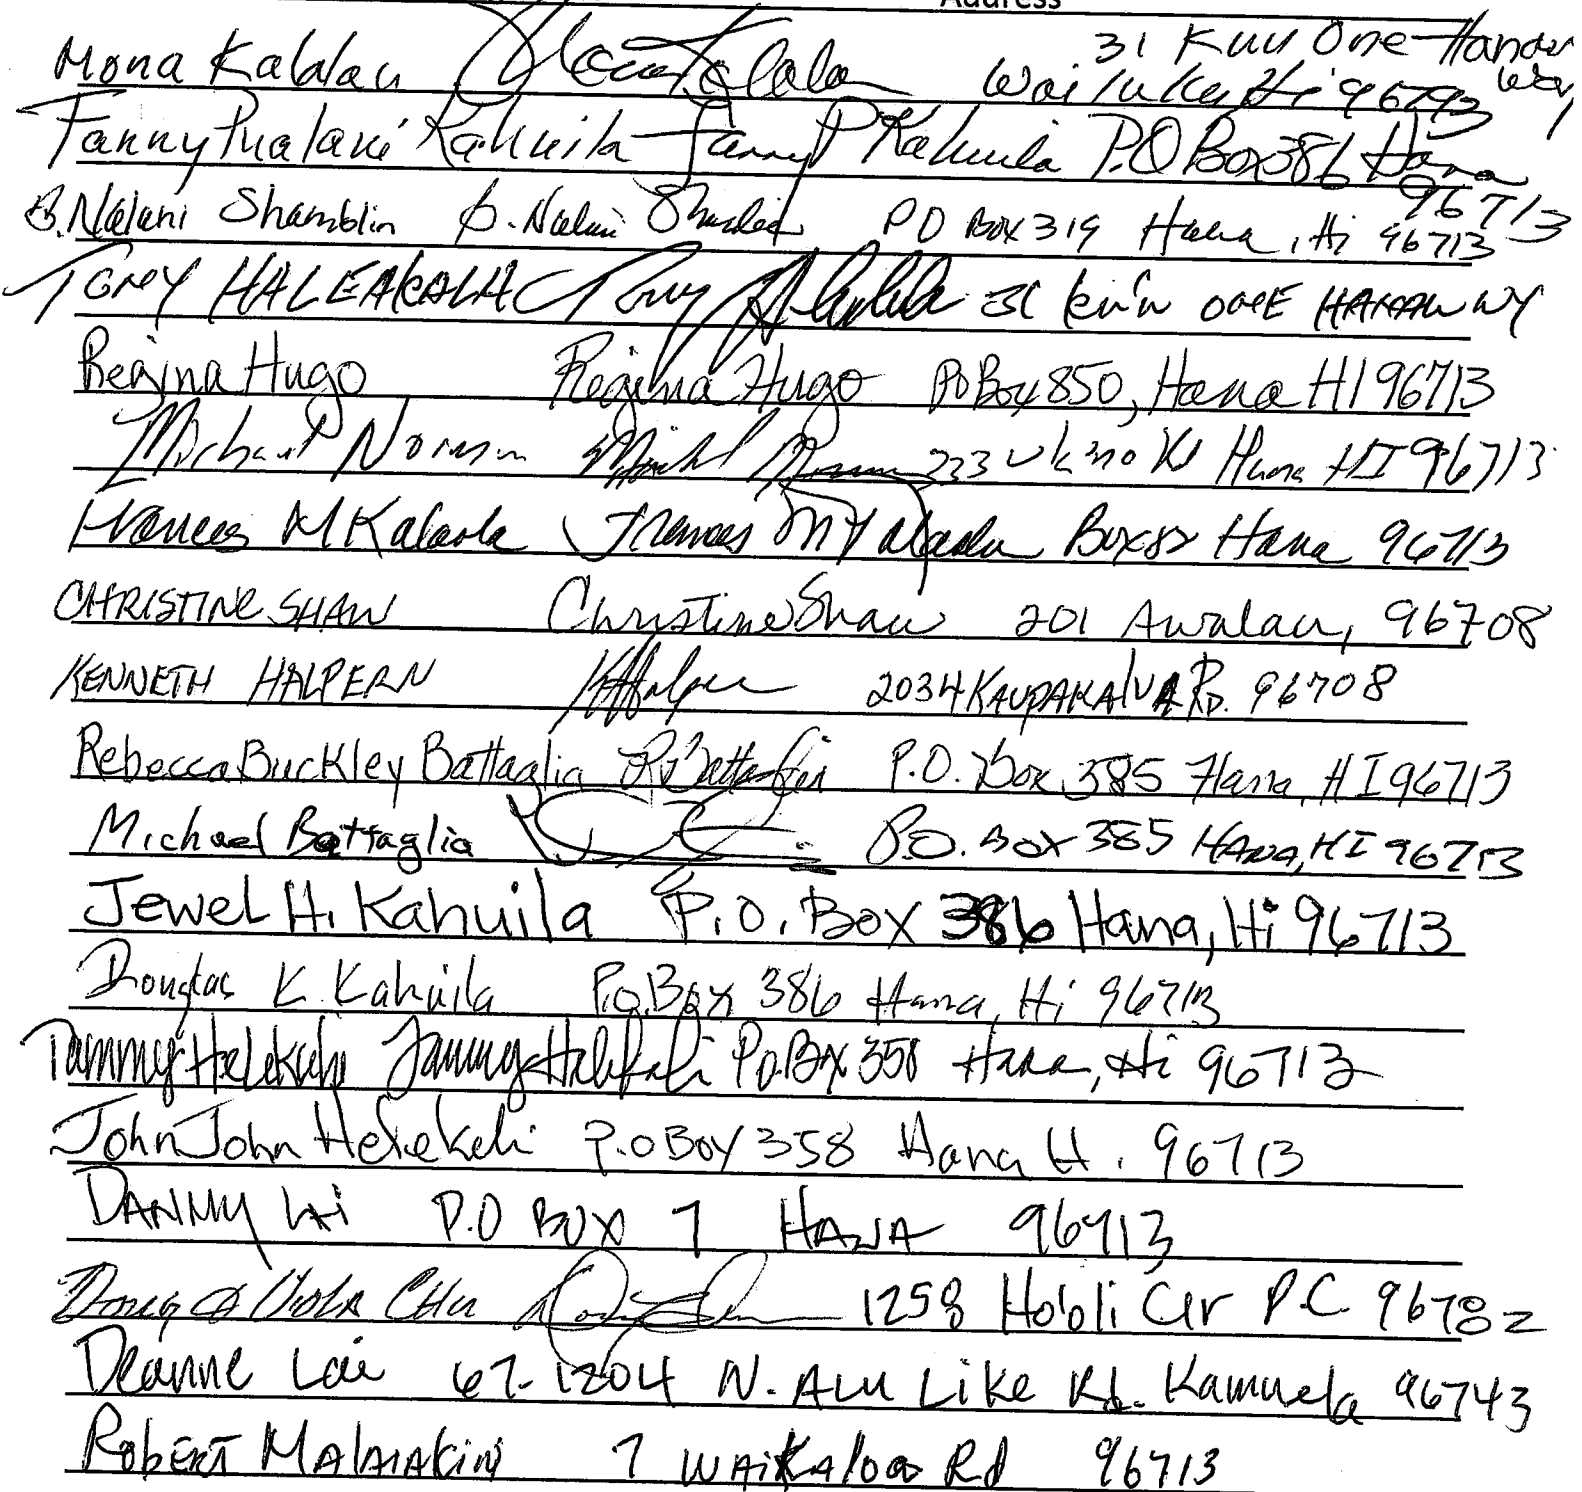 Address
Mona Kalalau Mona Kalalau 31 Kuu One Hanau Way
Wailuku, Hi 96793
Fanny Pualani Kahuila Fanny P Kahuila P.O Box 386 Hana
96713
B. Nalani Shamblin B. Nalani Shamblin PO Box 319 Hana, Hi 96713
TONY HALEAKALA Tony 31 ku'u ONE HANAU WY
Regina Hugo Regina Hugo PO Box 850, Hana HI 96713
Michael Norman Michael Norman 223 Hana HI 96713
Frances M Kalaola Frances M Box 82 Hana 96713
CHRISTINE SHAW Christine Shaw 201 Awalau, 96708
KENNETH HALPERN K Halpern 2034 KAUPAKALUA RD. 96708
Rebecca Buckley Battaglia R Battaglia P.O. Box 385 Hana, HI 96713
Michael Battaglia P.O. Box 385 HANA, HI 96713
Jewel H. Kahuila P.O. Box 386 Hana, Hi 96713
Douglas K. Kahuila P.O. Box 386 Hana, Hi 96713
Tammy Helekahi Tammy Helekahi P.O. Box 358 Hana, Hi 96713
John John Helekahi P.O Box 358 Hana H. 96713
DANNY LAI P.O BOX 7 HANA 96713
Doug & Viola Chu 1258 Hooli Cir P.C 96782
Deanne Lai 67-1204 N. ALU Like Rd. Kamuela 96743
Robert MALAIAKINI 7 WAIKALOA Rd 96713